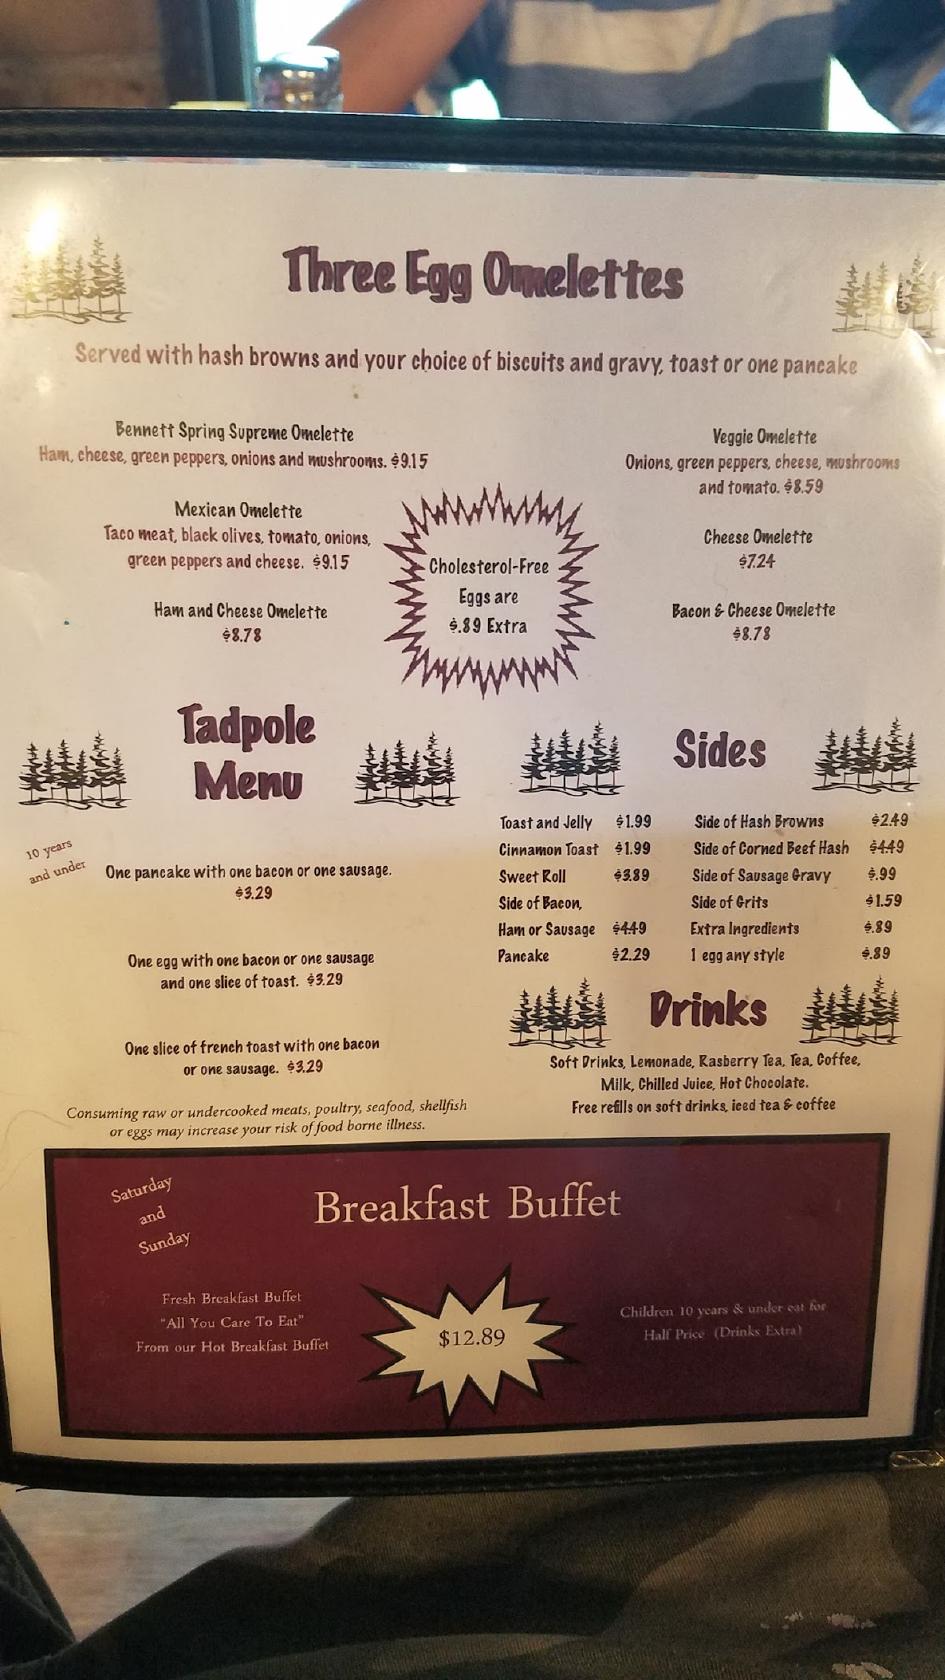 Three Egg Omelettes
Served with hash browns and your choice of biscuits and gravy, toast or one pancake
Bennett Spring Supreme Omelette
Ham, cheese, green peppers, onions and mushrooms. $9.15
Mexican Omelette
Taco meat, black olives, tomato, onions,
green peppers and cheese. $9.15
Ham and Cheese Omelette
$8.78
Cholesterol-Free
Eggs are
$.89 Extra
Veggie Omelette
Onions, green peppers, cheese, mushrooms
and tomato. $8.59
Cheese Omelette
$7.24
Bacon & Cheese Omelette
$8.78
Tadpole
Menu
10 years
and under
One pancake with one bacon or one sausage.
$3.29
One egg with one bacon or one sausage
and one slice of toast. $3.29
One slice of french toast with one bacon
or one sausage. $3.29
Consuming raw or undercooked meats, poultry, seafood, shellfish
or eggs may increase your risk of food borne illness.
Sides
Toast and Jelly $1.99
Cinnamon Toast $1.99
Sweet Roll $3.89
Side of Bacon,
Ham or Sausage $4.49
Pancake $2.29
Side of Hash Browns $2.49
Side of Corned Beef Hash $4.49
Side of Sausage Gravy $.99
Side of Grits $1.59
Extra Ingredients $.89
1 egg any style $.89
Drinks
Soft Drinks, Lemonade, Rasberry Tea, Tea, Coffee,
Milk, Chilled Juice, Hot Chocolate.
Free refills on soft drinks, iced tea & coffee
Saturday
and
Sunday
Breakfast Buffet
Fresh Breakfast Buffet
"All You Care To Eat"
From our Hot Breakfast Buffet
$12.89
Children 10 years & under eat for
Half Price (Drinks Extra)